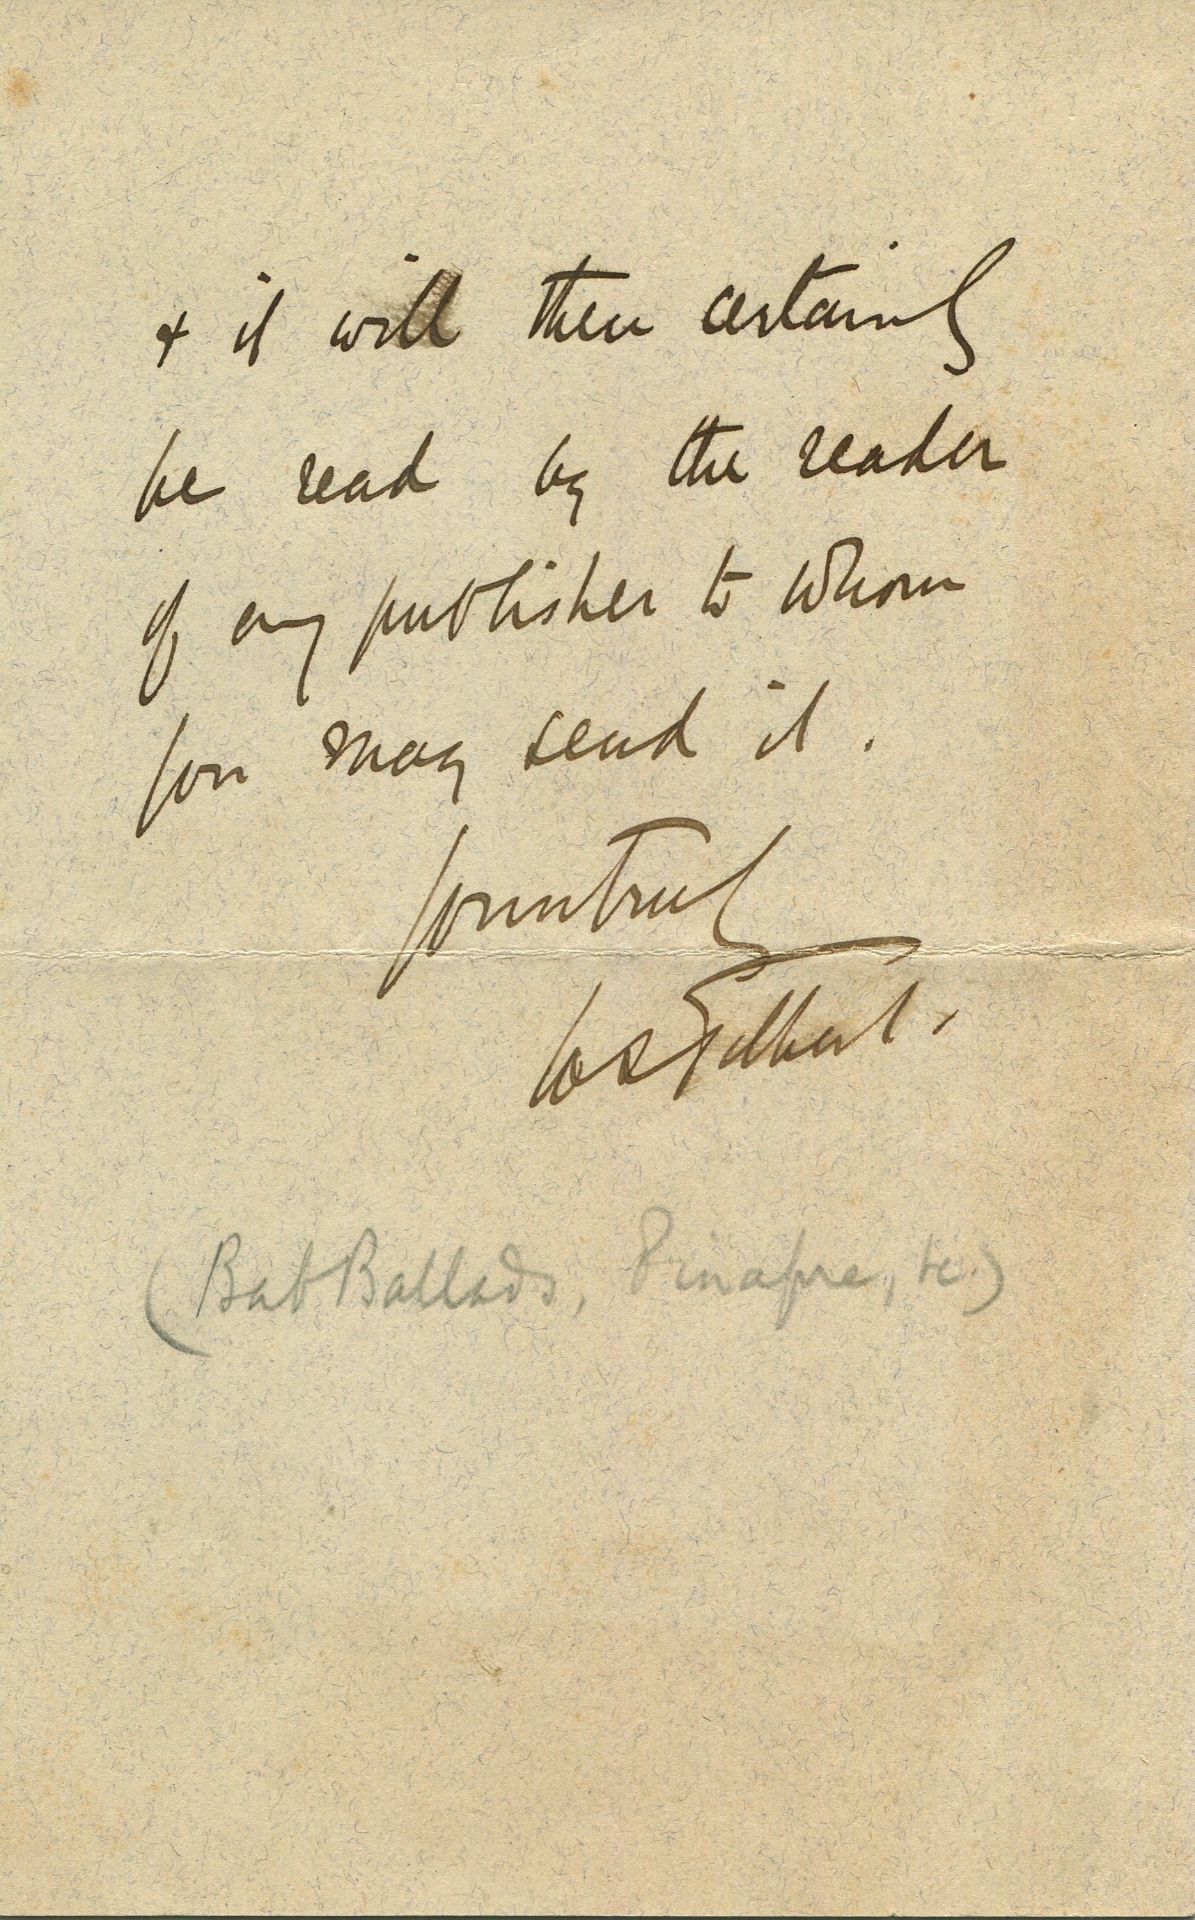 & it will then certainly
be read by the reader
of any publisher to whom
you may send it.
Yours truly
WSGilbert.
(Bab Ballads, Pinafore, &c.)